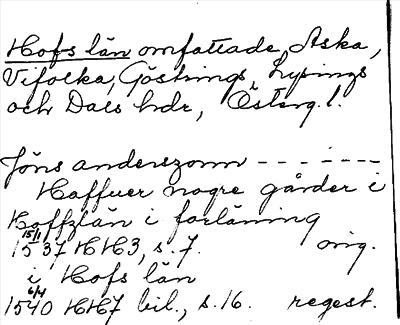 Hofs län omfattade Aska,
Vifolka, Göstrings, Lysings
och Dals hdr, Österg. l.
Jöns anderszonn - - - - - -
Haffuer nogre gårder i
Hoffzlän i forläning
15/11
1537, HH3, s. 7. orig.
i Hofs län
6/4
1540 HH7 bil., s. 16. regest.